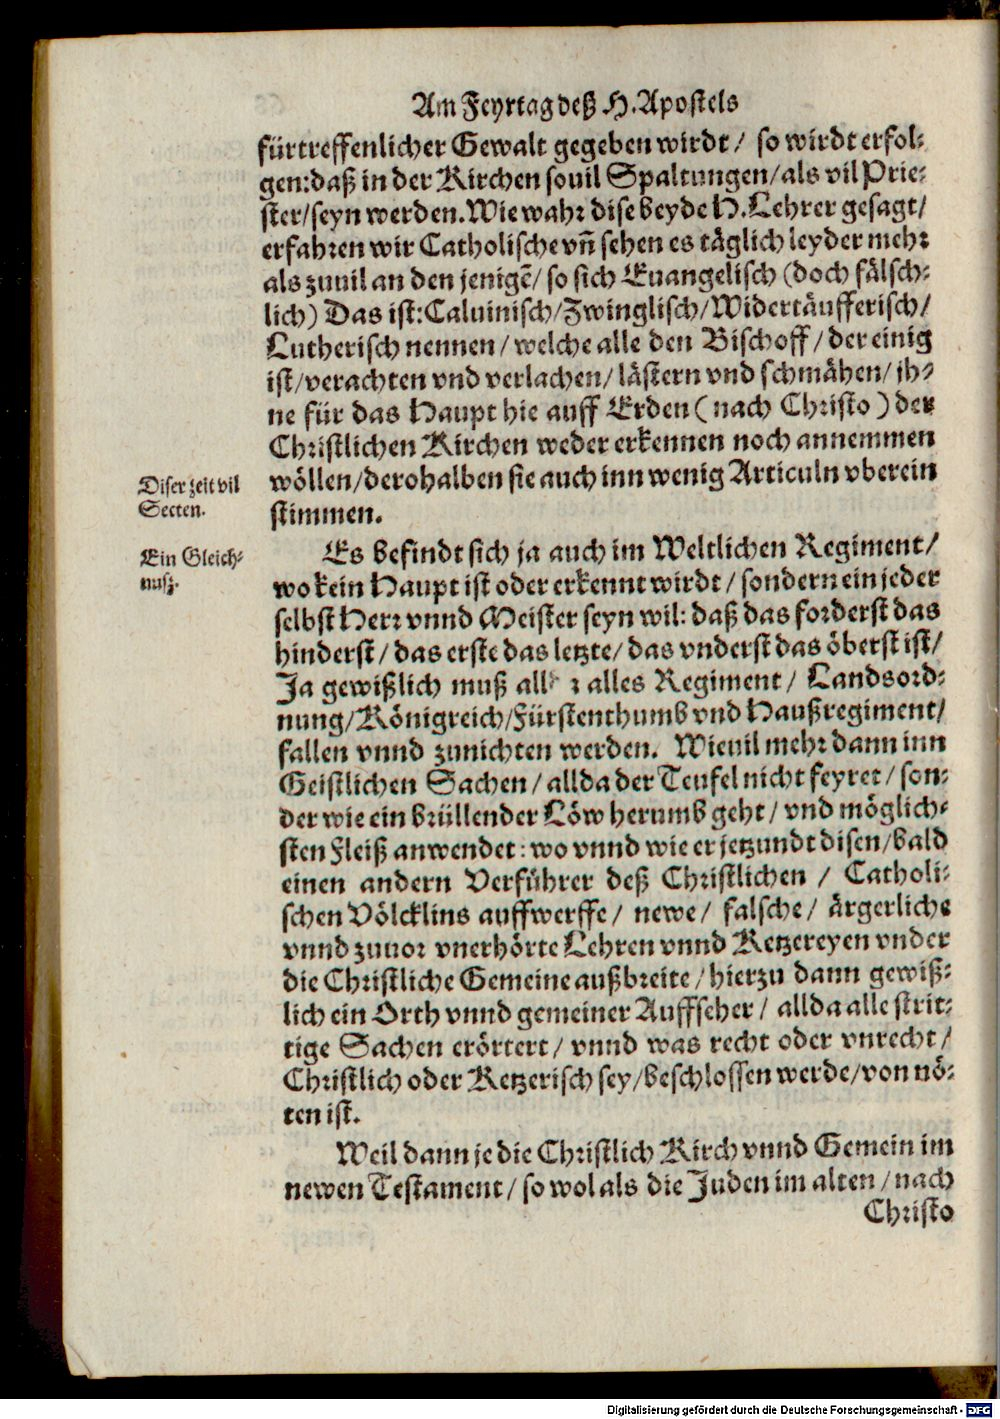 Am Feyrtag deß H. Apostels
fürtreffenlicher Gewalt gegeben wirdt / so wirdt erfol-
gen: daß in der Kirchen souil Spaltungen / als vil Prie-
ster / seyn werden. Wie wahr dise beyde H. Lehrer gesagt /
erfahren wir Catholische vñ sehen es täglich leyder mehr
als zuuil an den jenigẽ / so sich Euangelisch (doch fälsch-
lich) Das ist: Caluinisch / Zwinglisch / Widertäufferisch /
Lutherisch nennen / welche alle den Bischoff / der einig
ist / verachten vnd verlachen / lästern vnd schmähen / jh-
ne für das Haupt hie auff Erden (nach Christo) der
Christlichen Kirchen weder erkennen noch annemmen
Diser zeit vil
Secten.
wöllen / derohalben sie auch inn wenig Articuln vberein
stimmen.
Ein Gleich-
nusz.
Es befindt sich ja auch im Weltlichen Regiment /
wo kein Haupt ist oder erkennt wirdt / sondern ein jeder
selbst Herr vnnd Meister seyn wil: daß das forderst das
hinderst / das erste das letzte / das vnderst das öberst ist /
Ja gewißlich muß alles Regiment / Landsord-
nung / Königreich / Fürstenthumb vnd Haußregiment /
fallen vnnd zunichten werden. Wieuil mehr dann inn
Geistlichen Sachen / allda der Teufel nicht feyret / son-
der wie ein brüllender Löw herumb geht / vnd möglich-
sten Fleiß anwendet: wo vnnd wie er jetzundt disen / bald
einen andern Verführer deß Christlichen / Catholi-
schen Völcklins auffwerffe / newe / falsche / ärgerliche
vnnd zuuor vnerhörte Lehren vnnd Ketzereyen vnder
die Christliche Gemeine außbreite / hierzu dann gewiß-
lich ein Orth vnnd gemeiner Auffseher / allda alle strit-
tige Sachen erörtert / vnnd was recht oder vnrecht /
Christlich oder Ketzerisch sey / beschlossen werde / von nö-
ten ist.
Weil dann je die Christlich Kirch vnnd Gemein im
newen Testament / so wol als die Juden im alten / nach
Christo
Digitalisierung gefördert durch die Deutsche Forschungsgemeinschaft - DFG